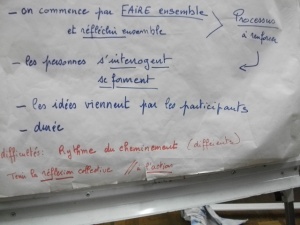 - on commence par FAIRE ensemble
et réfléchir ensemble
Processus
à renforcer
- les personnes s'interrogent
se forment
- les idées viennent par les participants
- durée
difficultés: Rythme du cheminement (différents)
Tenir la réflexion collective // à l'action